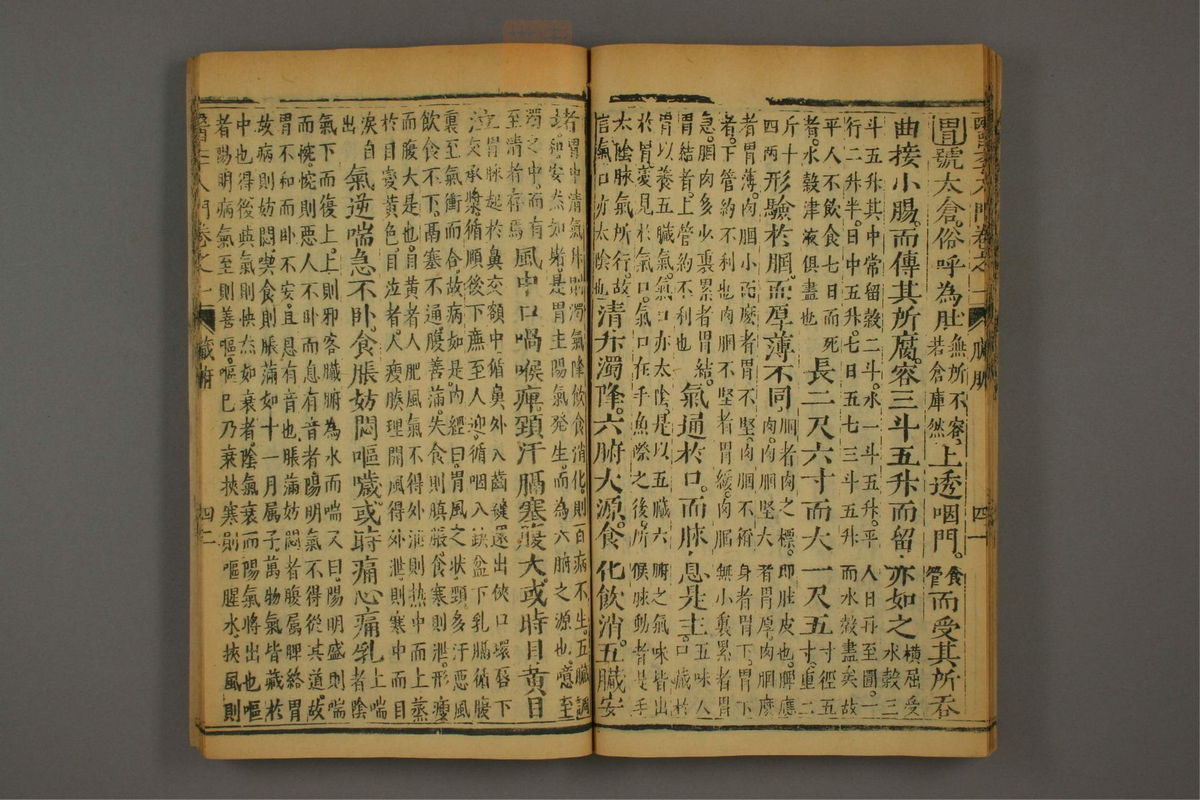 醫學入門卷之一 臟腑 四一
胃號太倉。俗呼為肚
無所不容
若倉庫然
上透咽門。
食
管
而受其所吞
曲接小腸。而傳其所腐。容三斗五升而留亦如之
橫屈受
水穀三
斗五升其中常留穀二斗。水一斗五升。平人日再至圊。一
行二升半。日中五升。七日五七三斗五升而水穀盡矣故
平人不飲食七日而死
者。水穀津液俱盡也
長二尺六寸而大一尺五
寸徑五
寸。重二
斤十
四兩
形驗於䐃。而厚薄不同
䐃者肉之標。即肚皮也。脾應
肉。肉䐃堅大者胃厚肉䐃麼
者胃薄。肉䐃小而麼者胃不堅。肉䐃不稱身者胃下。胃下
者。下管約不利也肉䐃不堅者胃緩。肉䐃無小裹累者胃
急。䐃肉多少裹累者胃結。
胃結者。上管約不利也
氣通於口。而脉息是主。
口藏於
五味入
胃以養五臟氣。氣口亦太陰。是以五臟六腑之氣味皆出
於胃。變見於氣口。氣口在手魚際之後。所候脉動者是手
太陰脉氣所行。故
言氣口亦太陰也
清升濁降。六腑大源。食化飲消。五臟安
堵
胃中清氣升則濁氣降飲食消化。則百病不生。五臟調
安然如堵。是胃主陽氣發生。而為六腑之源也。噫至
濁之中。而有
至清者存焉
風中口喎喉痺頸汗膈塞腹大或時目黃目
泣
胃脉起於鼻交額中循鼻外入齒縫還出俠口環唇下
交承漿。循頤後下廉至人迎。循咽入缺盆下乳膈循腹
裏至氣衝而合。故病如是。內經曰。胃風之狀。頸多汗惡風
飲食不下。鬲塞不通。腹善滿。失食則䐜脹。食寒則泄。形瘦
而腹大是也。目黃者人肥風氣不得外泄則熱中而上蒸
於目變黃色。目泣者。人瘦腠理開風得外泄。則寒中而目
淚自
出
氣逆喘急不卧。食脹妨悶嘔噦或時痛心痛乳
上喘
者陰
氣下而復上。上則邪客臟腑為水而喘又曰。陽明盛則喘
而惋。惋則惡人不卧而息有音者陽明氣不得從其道。故
胃不和而卧不安。且息有音也。脹滿妨悶者腹屬脾絡胃
故病則妨悶喫食則脹滿如十一月屬子萬物氣皆藏於
中也。得後與氣則快然如衰者。陰氣衰而陽氣將出也嘔
者陽明病氣至則善嘔。嘔已乃衰挾寒則嘔腥水。挾風則
醫學入門卷之一 臟腑 四二